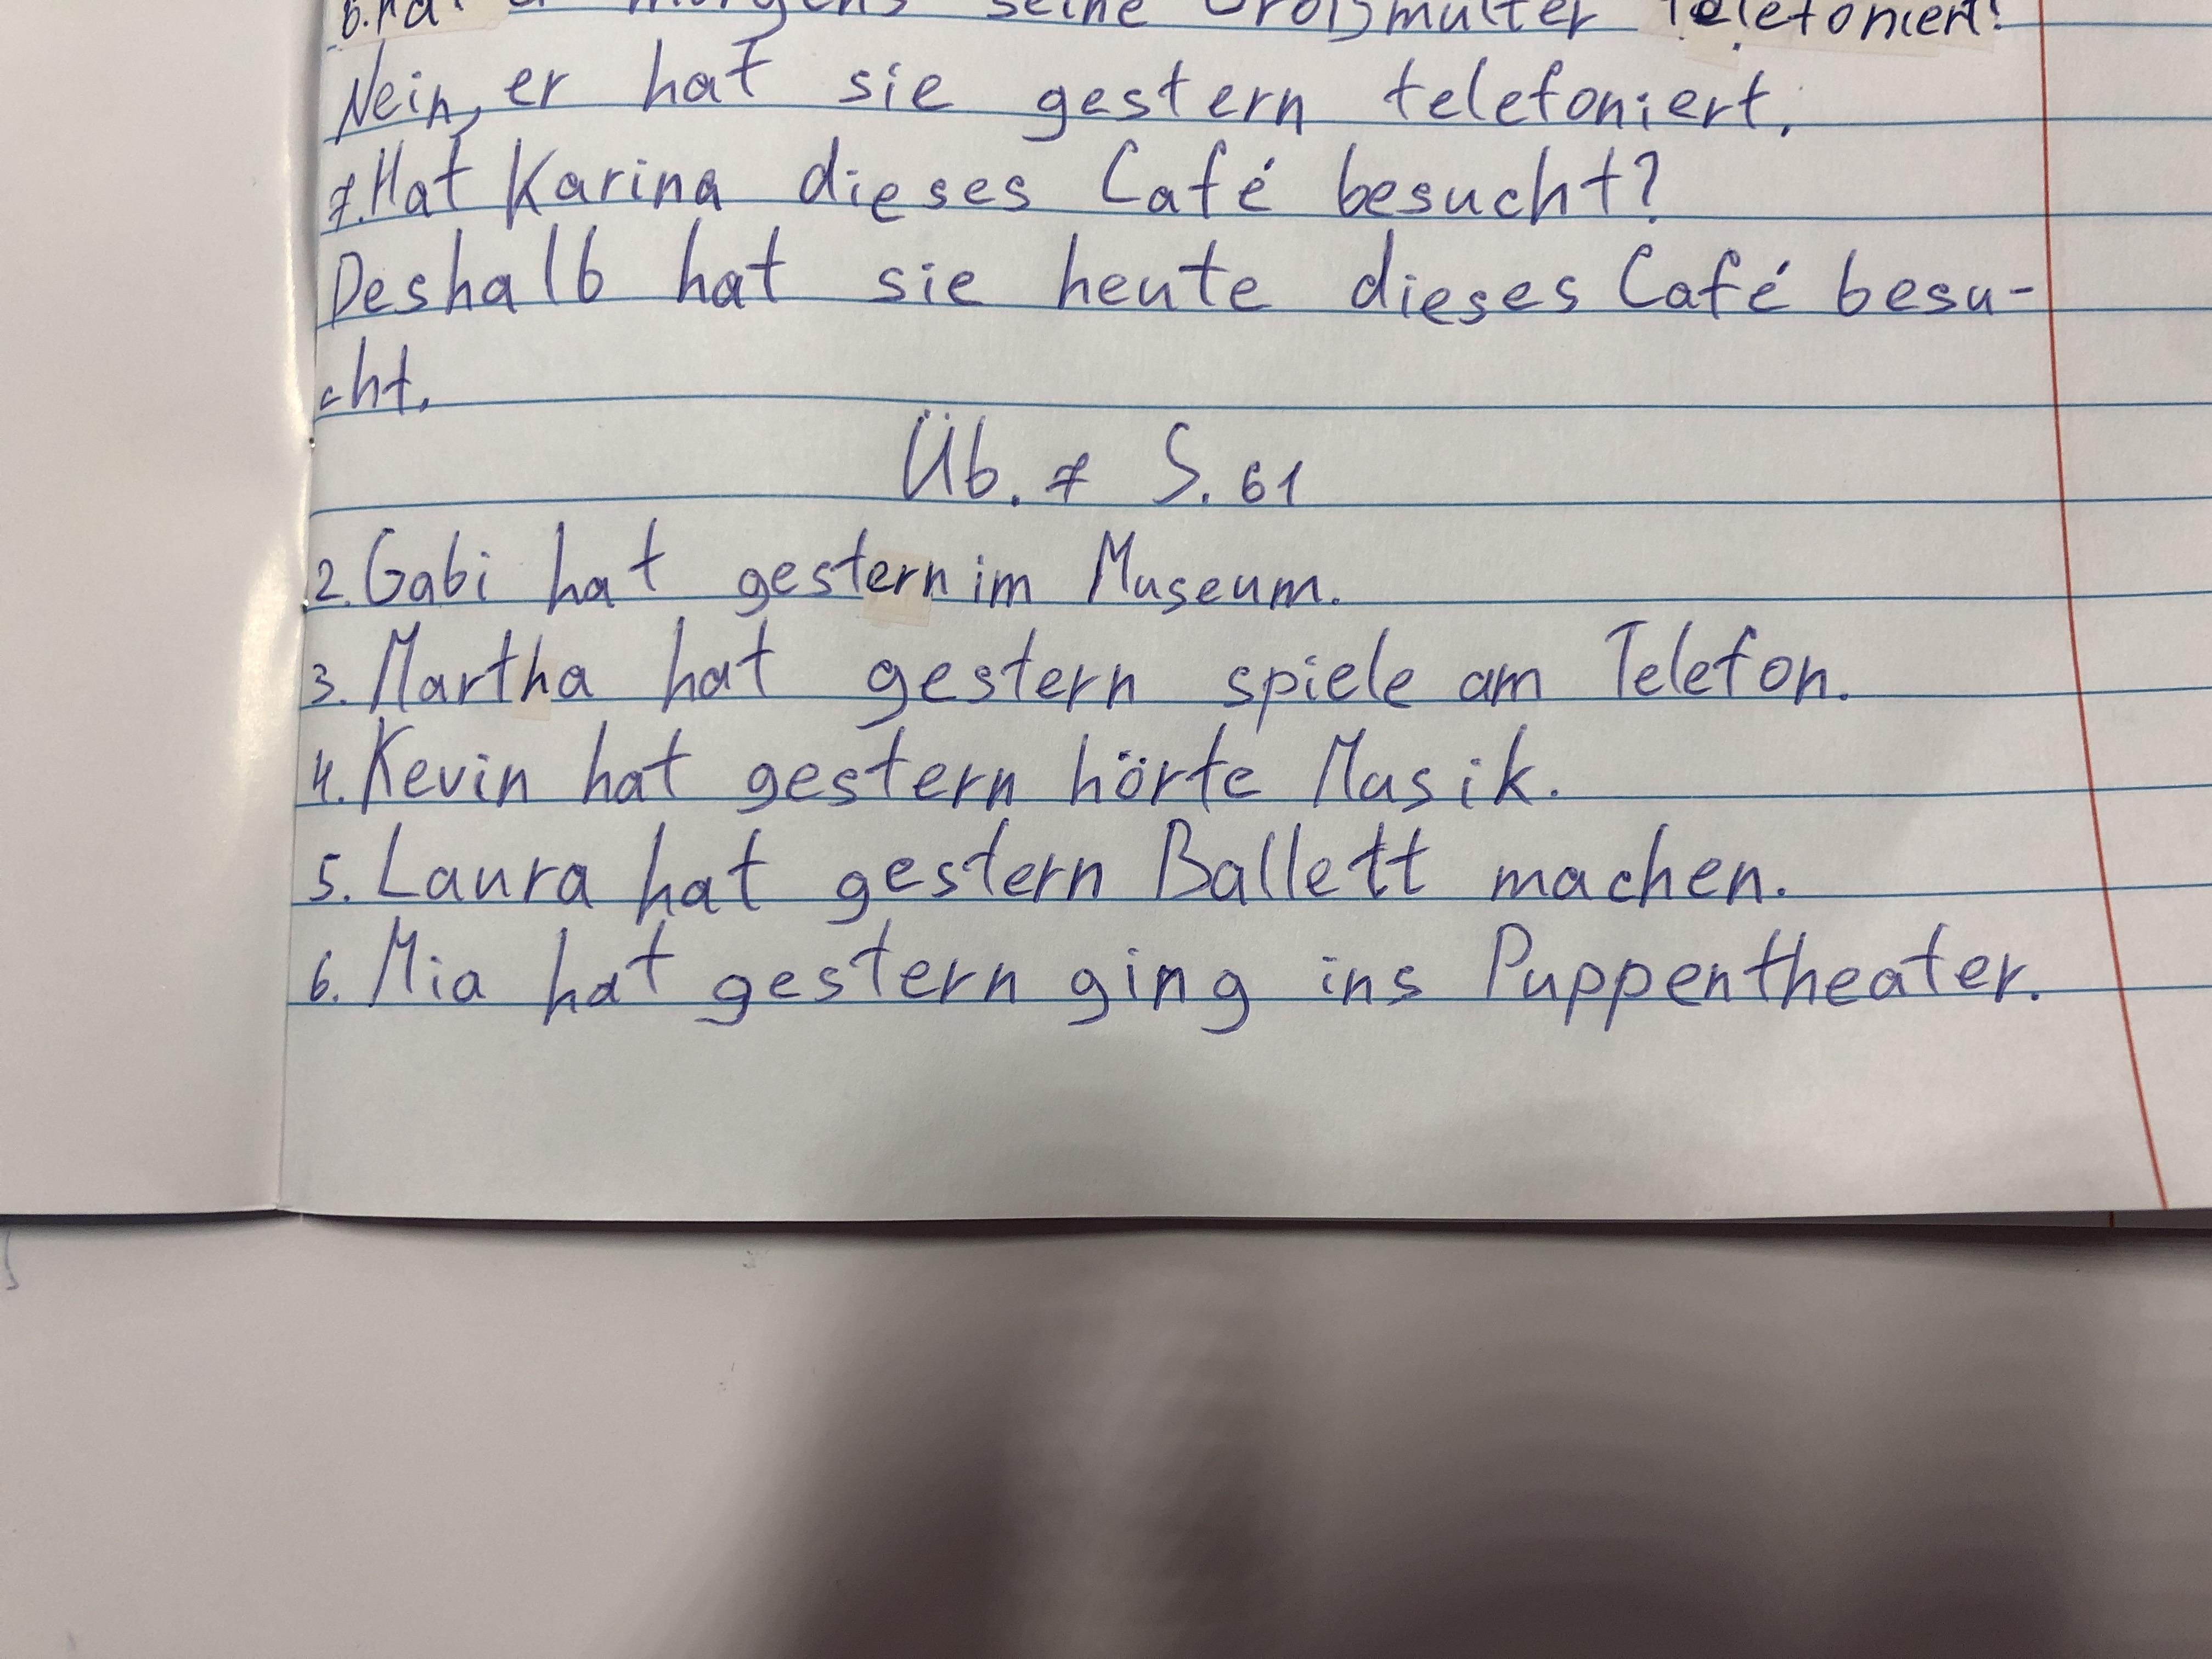 morgens seine Großmutter Telefoniert?
Nein, er hat sie gestern telefoniert.
7. Hat Karina dieses Café besucht?
Deshalb hat sie heute dieses Café besu-
cht.
Üb. 7 S. 61
2. Gabi hat gestern im Museum.
3. Martha hat gestern spiele am Telefon.
4. Kevin hat gestern hörte Musik.
5. Laura hat gestern Ballett machen.
6. Mia hat gestern ging ins Puppentheater.